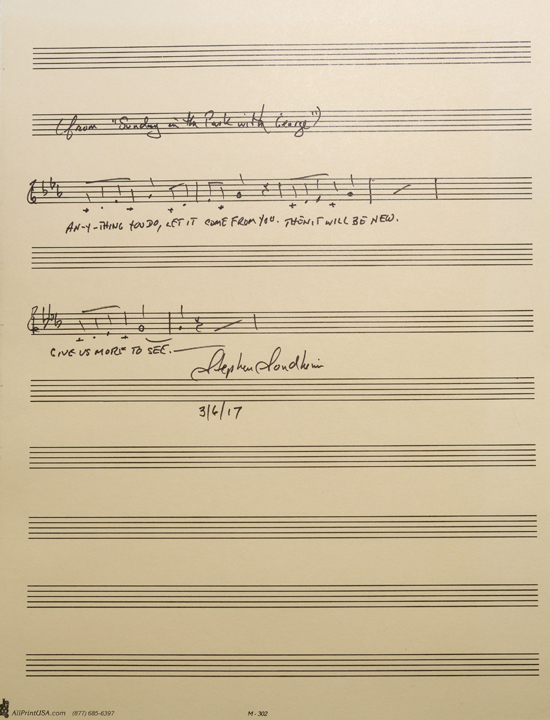 (from "Sunday in the Park with George")
AN-Y-THING YOU DO, LET IT COME FROM YOU. THEN IT WILL BE NEW.
GIVE US MORE TO SEE.
Stephen Sondheim
3/6/17
AllPrintUSA.com (877) 685-6397 M - 302